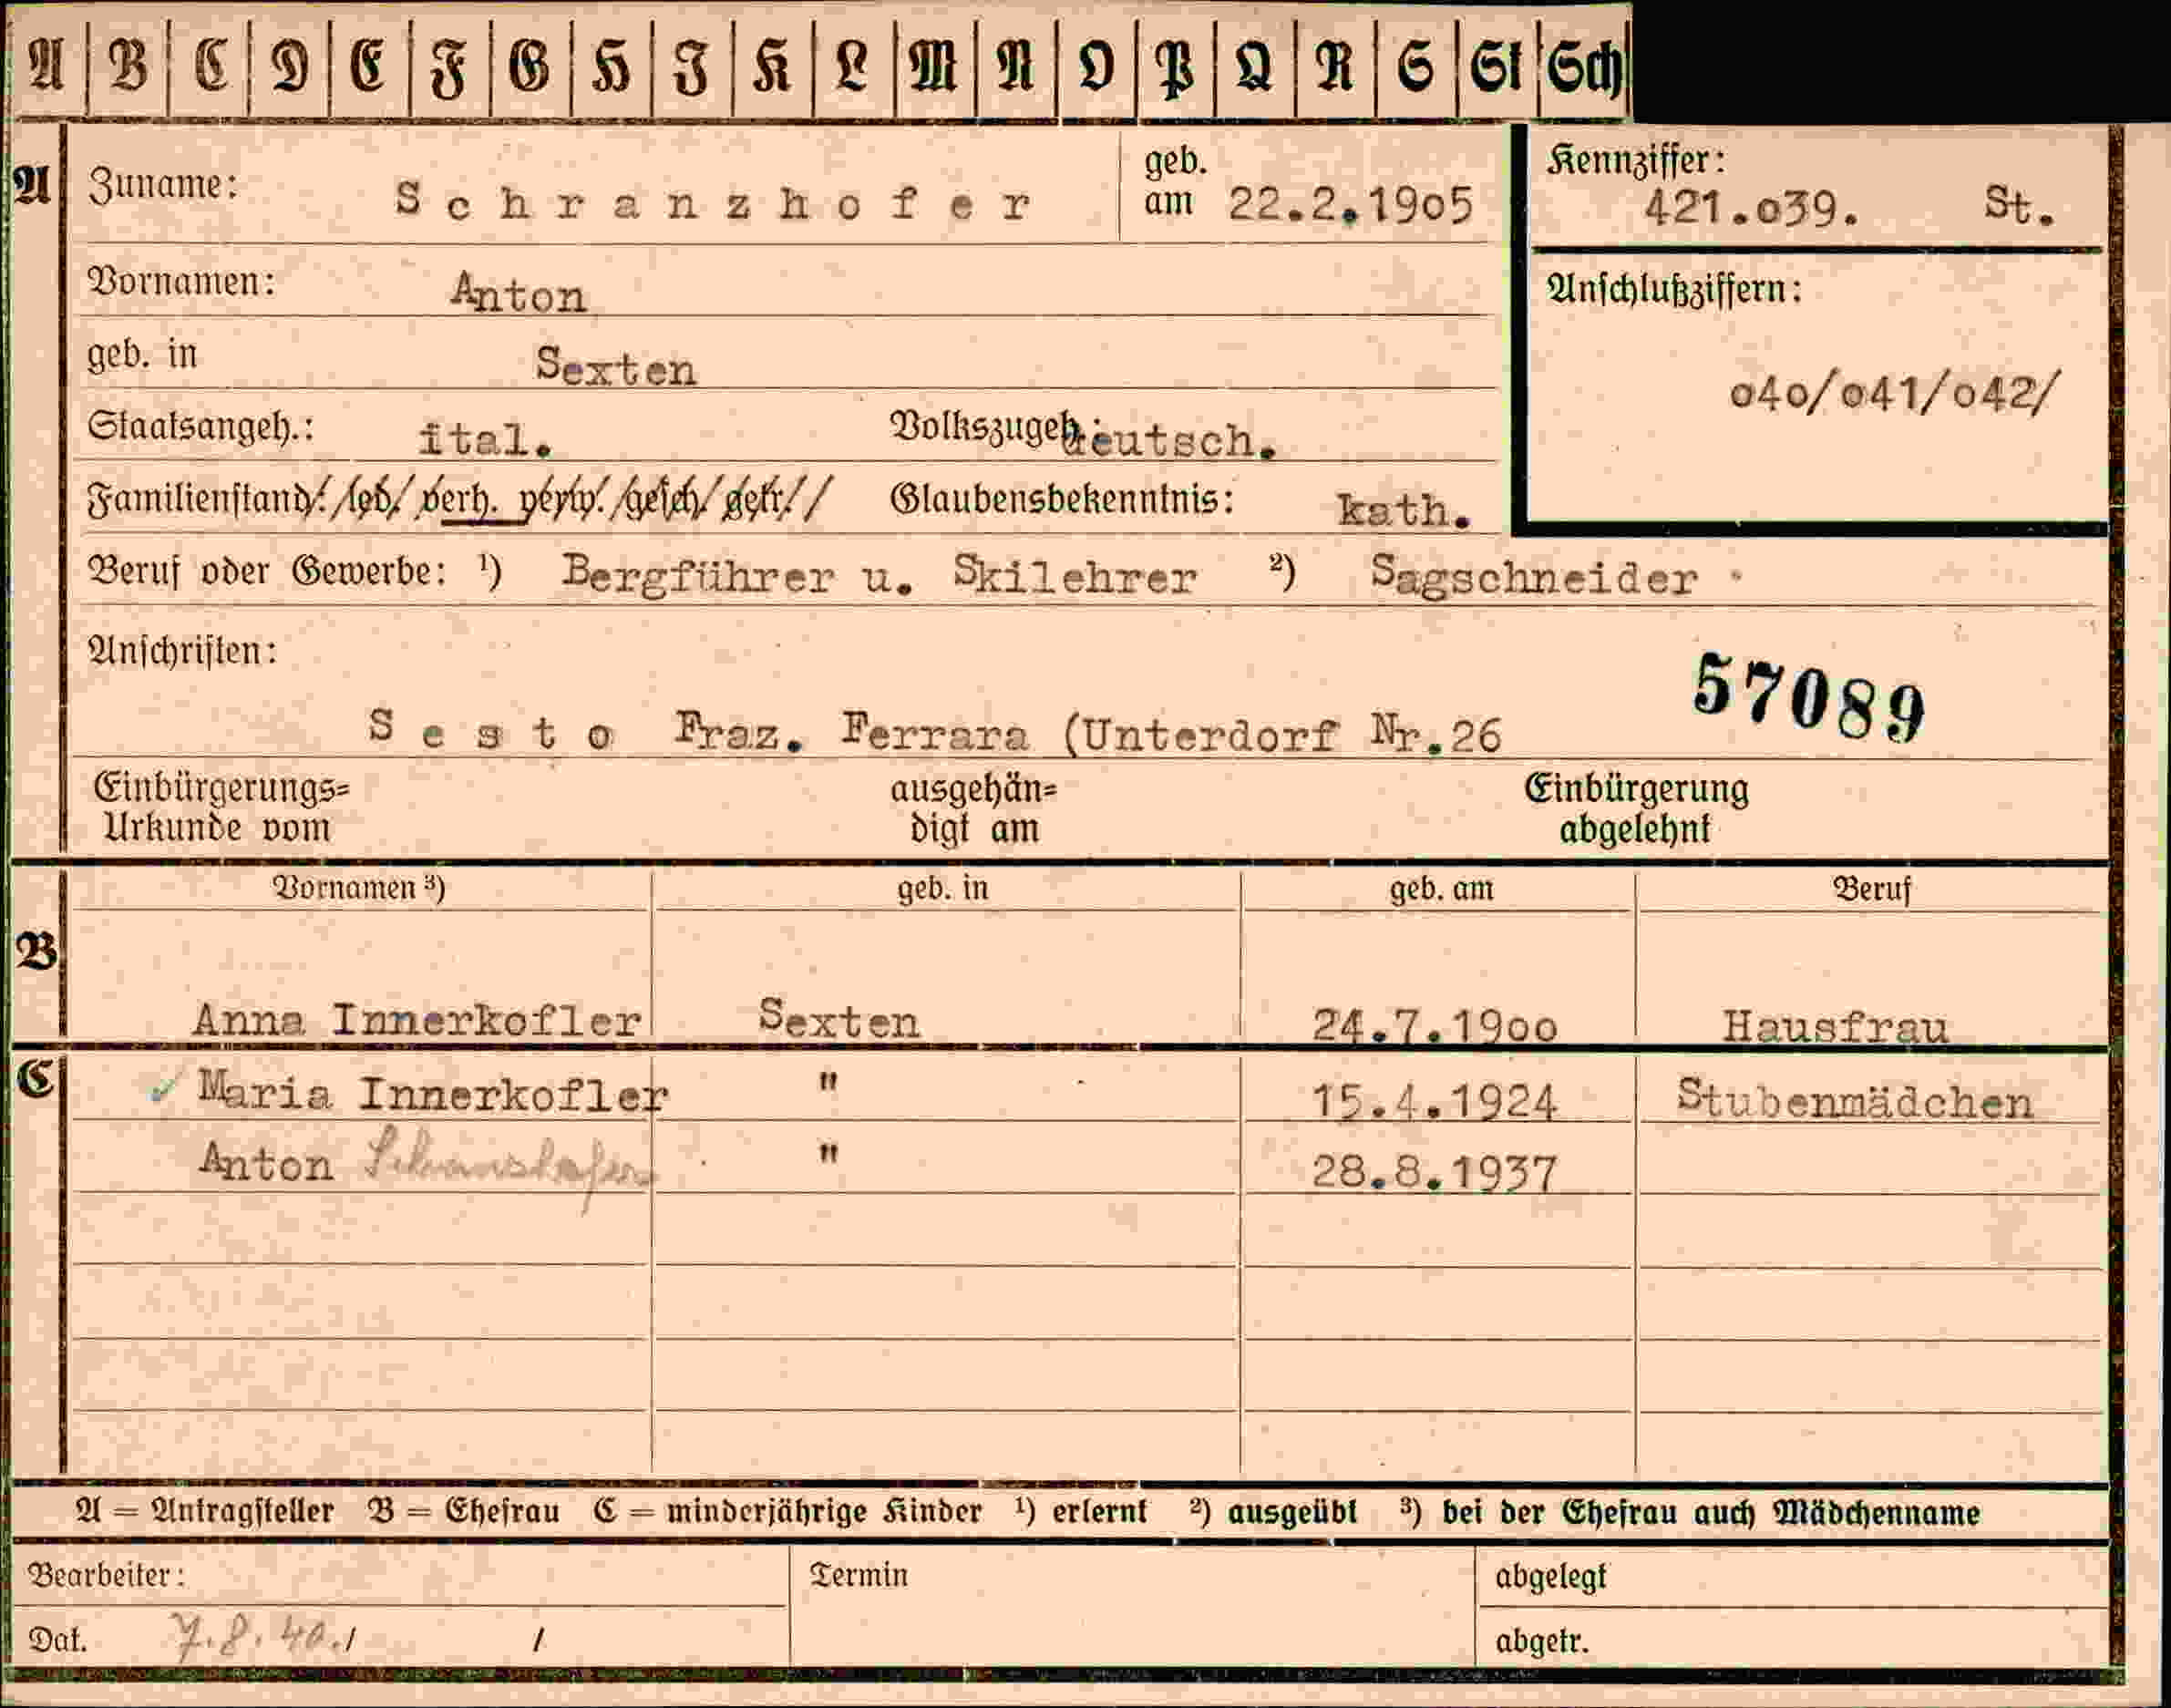 A B C D E F G H I K L M N O P Q R S St Sch
A Zuname: Schranzhofer geb. am 22.2.19o5 Kennziffer: 421.o39. St.
Vornamen: Anton Anschlußziffern:
geb. in Sexten o4o/o41/o42/
Staatsangeh.: ital. Volkszugeh.: deutsch.
Familienstand: led. verh. verw. gesch. getr. Glaubensbekenntnis: kath.
Beruf oder Gewerbe: ¹) Bergführer u. Skilehrer ²) Sagschneider
Anschriften: 57089
Sesto Fraz. Ferrara (Unterdorf Nr.26
Einbürgerungs= ausgehän= Einbürgerung
Urkunde vom digt am abgelehnt
Vornamen ³) geb. in geb. am Beruf
B
Anna Innerkofler Sexten 24.7.19oo Hausfrau
C ✓ Maria Innerkofler " 15.4.1924 Stubenmädchen
Anton Schranzhofer " 28.8.1937
A = Antragsteller B = Ehefrau C = minderjährige Kinder ¹) erlernt ²) ausgeübt ³) bei der Ehefrau auch Mädchenname
Bearbeiter: Termin abgelegt
Dat. 7.8.40./ / abgetr.